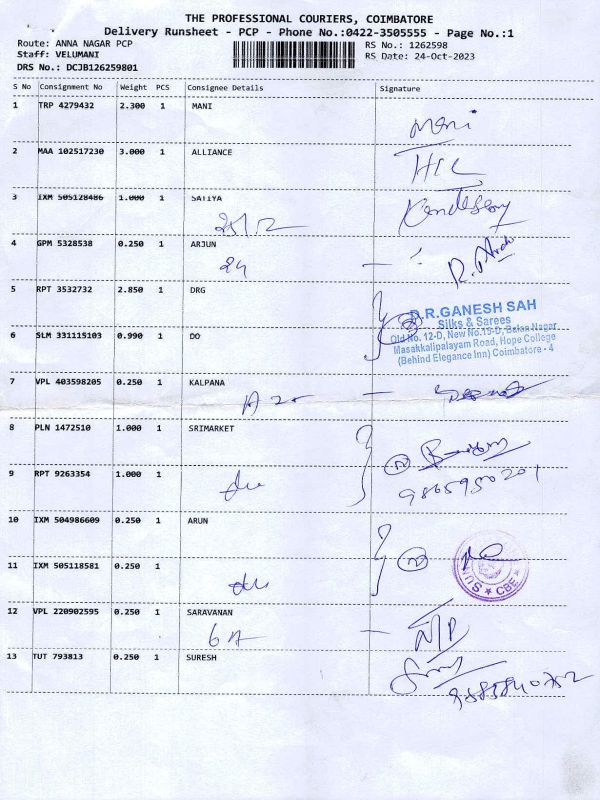 THE PROFESSIONAL COURIERS, COIMBATORE
Delivery Runsheet - PCP - Phone No.:0422-3505555 - Page No.:1
Route: ANNA NAGAR PCP
RS No.: 1262598
Staff: VELUMANI
RS Date: 24-Oct-2023
DRS No.: DCJB126259801
S No Consignment No Weight PCS Consignee Details Signature
1 TRP 4279432 2.300 1 MANI
Mani
2 MAA 102517230 3.000 1 ALLIANCE
3 IXM 505128486 1.000 1 SATIYA
4 GPM 5328538 0.250 1 ARJUN
24
5 RPT 3532732 2.850 1 DRG
D.R.GANESH SAH
Silks & Sarees
6 SLM 331115103 0.990 1 DO
Old No. 12-D, New No.15-D, Balan Nagar
Masakkalipalayam Road, Hope College
(Behind Elegance Inn) Coimbatore - 4
7 VPL 403598205 0.250 1 KALPANA
8 PLN 1472510 1.000 1 SRIMARKET
9 RPT 9263354 1.000 1
9865950201
10 IXM 504986609 0.250 1 ARUN
11 IXM 505118581 0.250 1
CBE
12 VPL 220902595 0.250 1 SARAVANAN
13 TUT 793813 0.250 1 SURESH